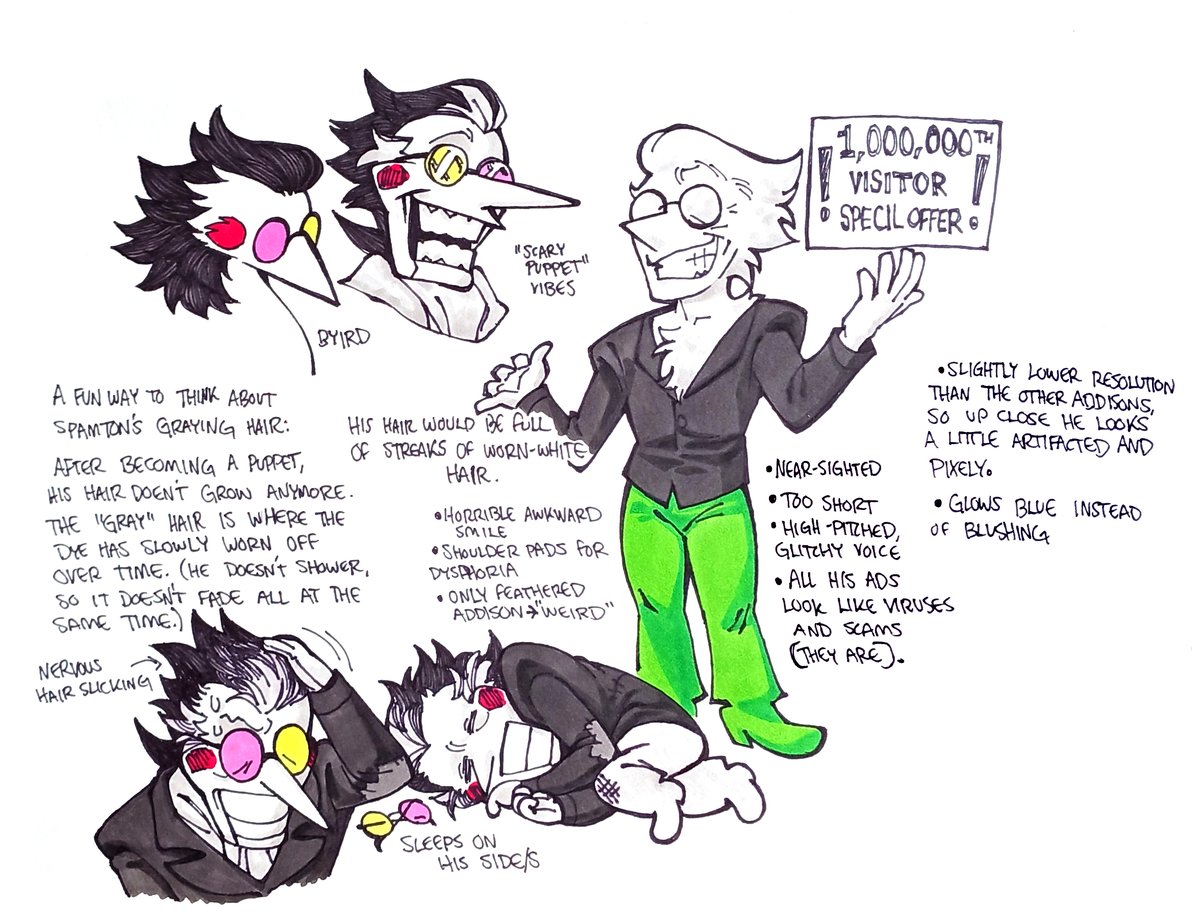 1,000,000TH
! VISITOR !
SPECIL OFFER
"SCARY
PUPPET"
VIBES
BYIRD
A FUN WAY TO THINK ABOUT
SPAMTON'S GRAYING HAIR:
AFTER BECOMING A PUPPET,
HIS HAIR DOEN'T GROW ANYMORE.
THE "GRAY" HAIR IS WHERE THE
DYE HAS SLOWLY WORN OFF
OVER TIME. (HE DOESN'T SHOWER,
SO IT DOESN'T FADE ALL AT THE
SAME TIME.)
HIS HAIR WOULD BE FULL
OF STREAKS OF WORN-WHITE
HAIR.
•HORRIBLE AWKWARD
SMILE
•SHOULDER PADS FOR
DYSPHORIA
•ONLY FEATHERED
ADDISON→"WEIRD"
•NEAR-SIGHTED
•TOO SHORT
•HIGH-PITCHED,
GLITCHY VOICE
•ALL HIS ADS
LOOK LIKE VIRUSES
AND SCAMS
(THEY ARE).
•SLIGHTLY LOWER RESOLUTION
THAN THE OTHER ADDISONS,
SO UP CLOSE HE LOOKS
A LITTLE ARTIFACTED AND
PIXELY.
•GLOWS BLUE INSTEAD
OF BLUSHING
NERVOUS
HAIR SLICKING
SLEEPS ON
HIS SIDE/S